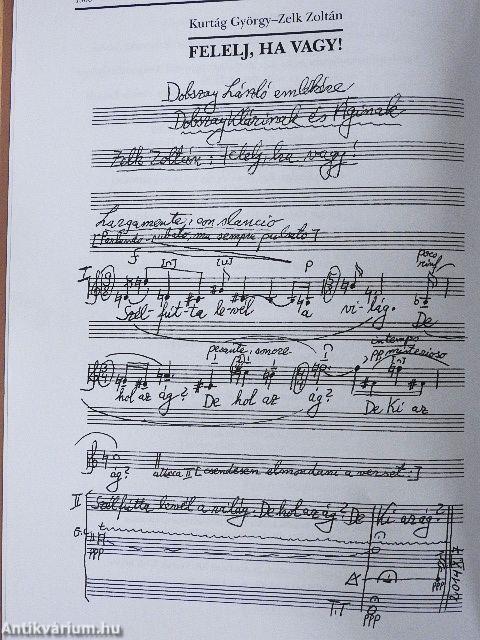 Kurtág György–Zelk Zoltán
FELELJ, HA VAGY!
Dobszay László emlékére
Dobszay Klárinak és Áginak
Zelk Zoltán: Felelj, ha vagy!
Largamente, con slancio
ma sempre
f
p
poco
I
Szél-fút-ta le-vél a vi-lág. De
pesante, sonore
in tempo
pp misterioso
hol az ág? De hol az ág? De Ki az
ág?
attacca II [csendesen elmondani a verset:]
II
Szélfútta levél a világ. De hol az ág? De Ki az ág?
ppp
ppp
T.T
ppp
Antikvárium.hu